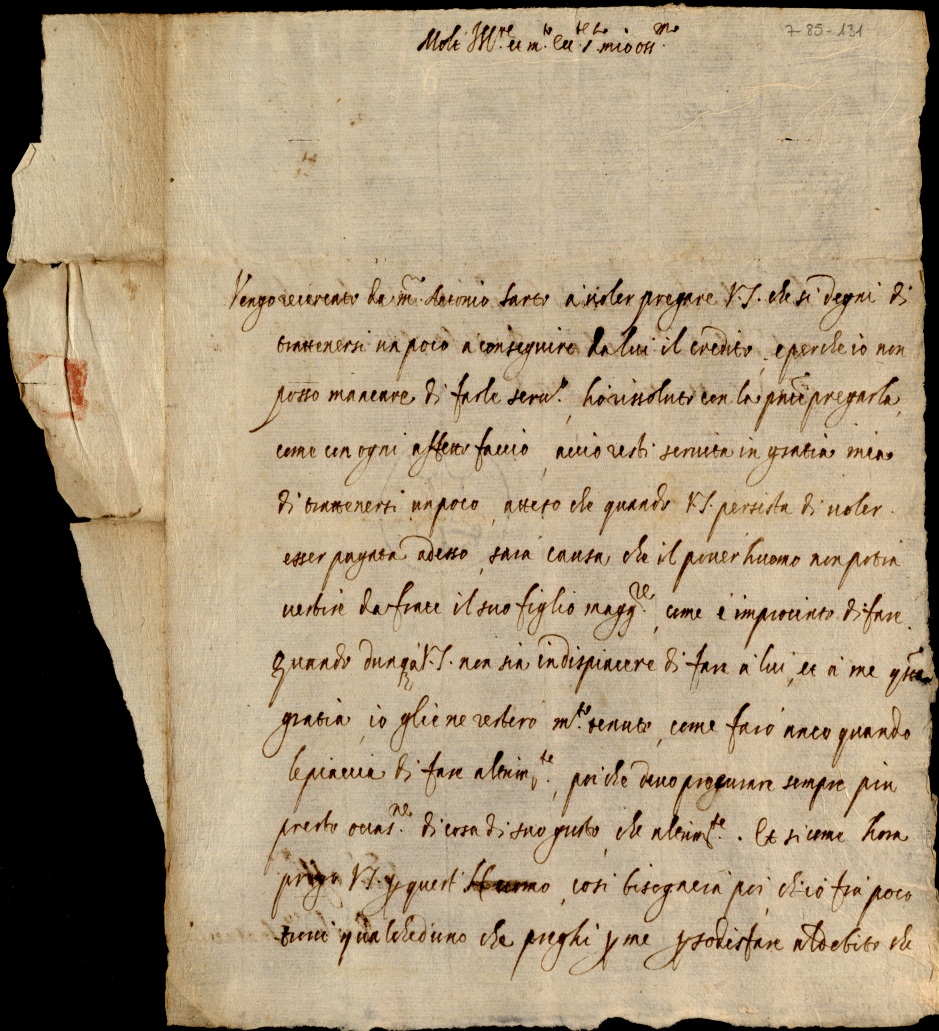 7-85-131
Molt' Ill.re et m.to Ecc.te S.re mio oss.mo
Vengo ricercato da m.ro Antonio Sarto à voler pregare V.S. che si degni di
trattenersi un poco a conseguire da lui il credito, e perche io non
posso mancare di farle serv.o, hò rissoluto con la pn̄te pregarla,
come con ogni affetto faccio, acciò resti servita in gratia mia
di trattenersi un poco, atteso che quando V.S. persista di voler
esser pagata adesso, sarà causa che il pover huomo non potrà
vestire da frate il suo figlio magg.re, come è in procinto di fare.
Quando dunq̄ à V.S. non sia in dispiacere di fare à lui, et à me q̄sta
gratia, io gliene resterò m.to tenuto, come farò anco quando
le piaccia di fare altrim.te, poi che devo procurare sempre più
presto occas.ne di cosa di suo gusto, che altrim.te. Et si come hora
prego V.S. ꝑ quest' Huomo, così bisognerà poi, ch'io frà poco
trovi qualcheduno che preghi ꝑ me ꝑ sodisfare al debito che